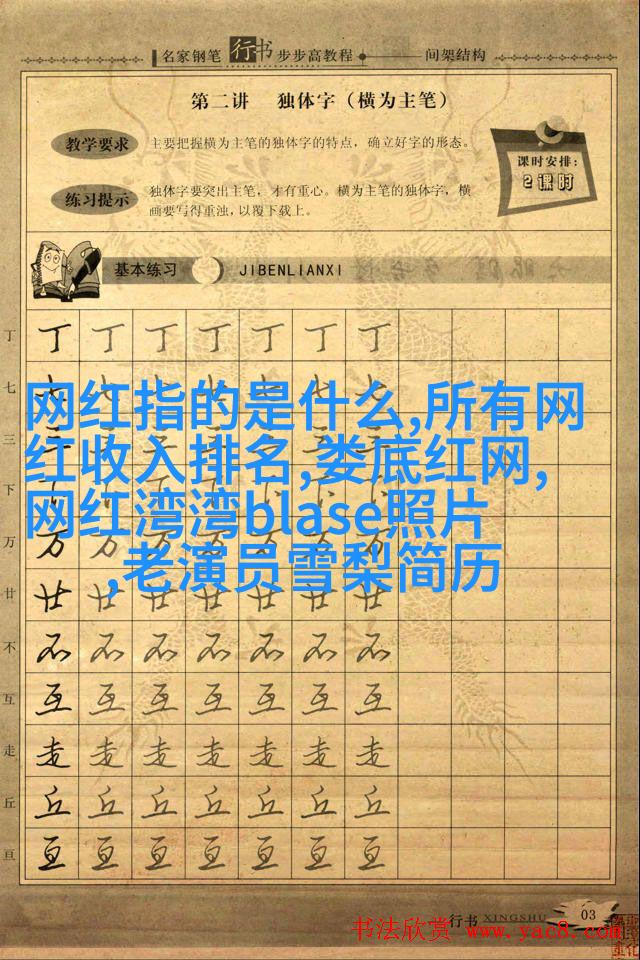 名家钢笔行书步步高教程 间架结构
第二讲 独体字（横为主笔）
教学要求 主要把握横为主笔的独体字的特点，确立好字的形态。
课时安排：
2课时
练习提示 独体字要突出主笔，才有重心。横为主笔的独体字，横
画要写得重浊，以覆下载上。
基本练习 JIBENLIANXI
丁 丁 丁 丁 丁 丁 丁 丁
七 七 七 七
网红指的是什么,所有网
三
红收入排名,娄底红网,
下
网红湾湾blase照片
万 万 万 万 万 万 万 万
,老演员雪梨简历
廿 廿 廿 廿 廿 廿 廿 廿
不 不 不 不 不 不 不 不
互 互 互 互 互 互 互 互
走 走 走 走 走 走 走 走
丘 丘 丘 丘 丘 丘 丘 丘
亘 亘 亘 亘 亘 亘 亘 亘
行书 XINGSHU 03
书法欣赏 www.yac8.com